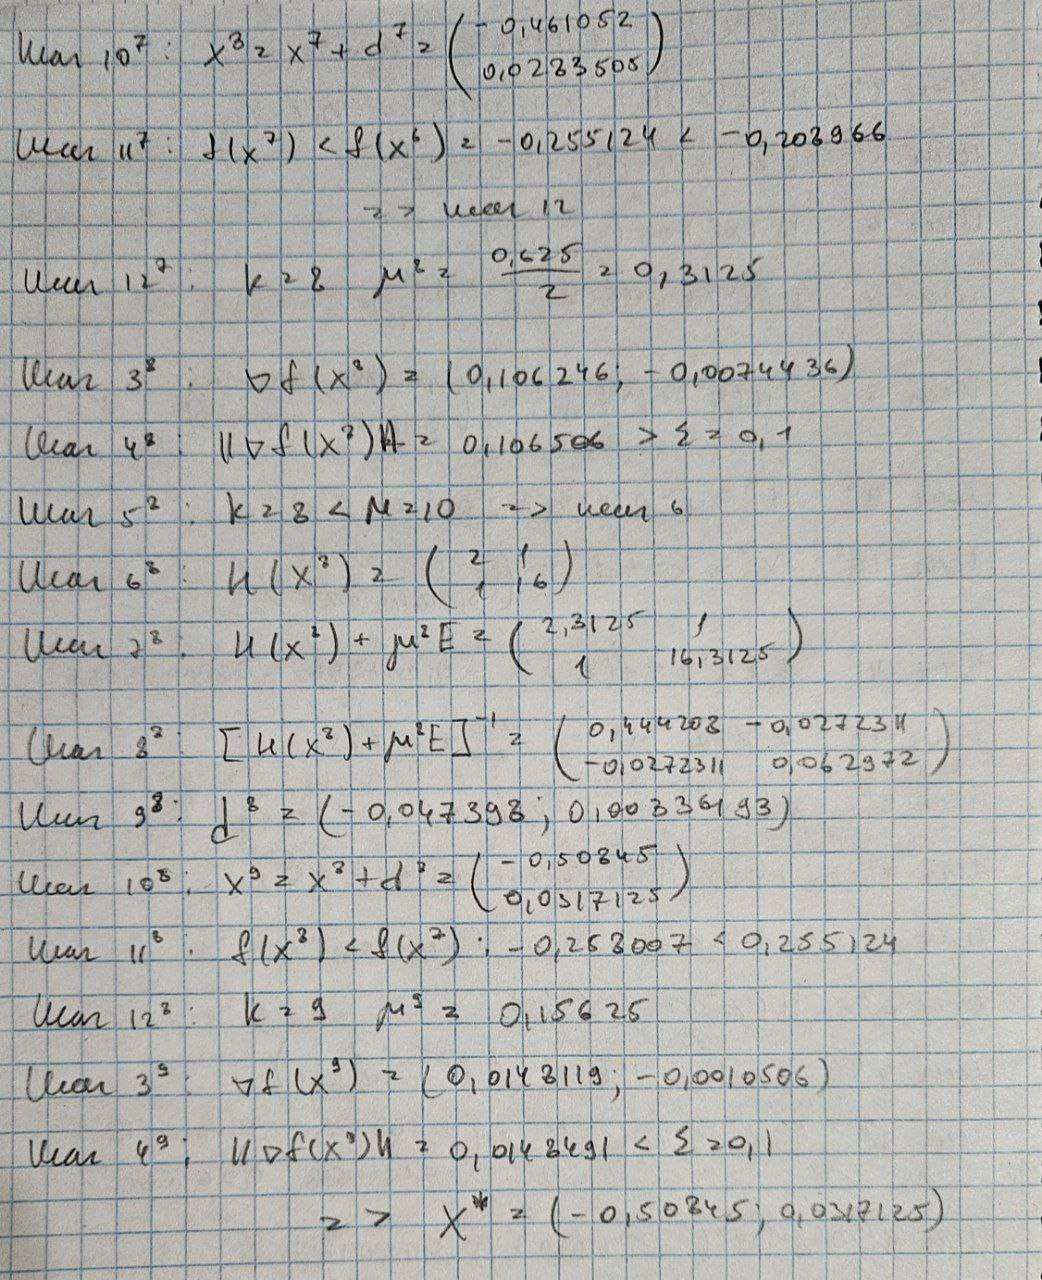 Шаг 10⁷: x⁸ = x⁷ + d⁷ = (-0,461052
0,0283505)
Шаг 11⁷: f(x⁷) < f(x⁶) = -0,255124 < -0,208966
=> шаг 12
Шаг 12⁷: k=8 μ⁸ = 0,625/2 = 0,3125
Шаг 3⁸: ∇f(x⁸) = (0,106246; -0,0074436)
Шаг 4⁸: ||∇f(x⁸)|| = 0,106506 > Σ = 0,1
Шаг 5⁸: k=8 < M=10 => шаг 6
Шаг 6⁸: H(x⁸) = (2 1
1 16)
Шаг 7⁸: H(x⁸) + μ⁸E = (2,3125 1
1 16,3125)
Шаг 8⁸: [H(x⁸) + μ⁸E]⁻¹ = (0,444208 -0,0272311
-0,0272311 0,062972)
Шаг 9⁸: d⁸ = (-0,047398; 0,00336193)
Шаг 10⁸: x⁹ = x⁸ + d⁸ = (-0,50845
0,0317125)
Шаг 11⁸: f(x⁸) < f(x⁷): -0,258007 < 0,255124
Шаг 12⁸: k=9 μ⁹ = 0,15625
Шаг 3⁹: ∇f(x⁹) = (0,0148119; -0,0010506)
Шаг 4⁹: ||∇f(x⁹)|| = 0,0148491 < Σ = 0,1
=> X* = (-0,50845; 0,0317125)